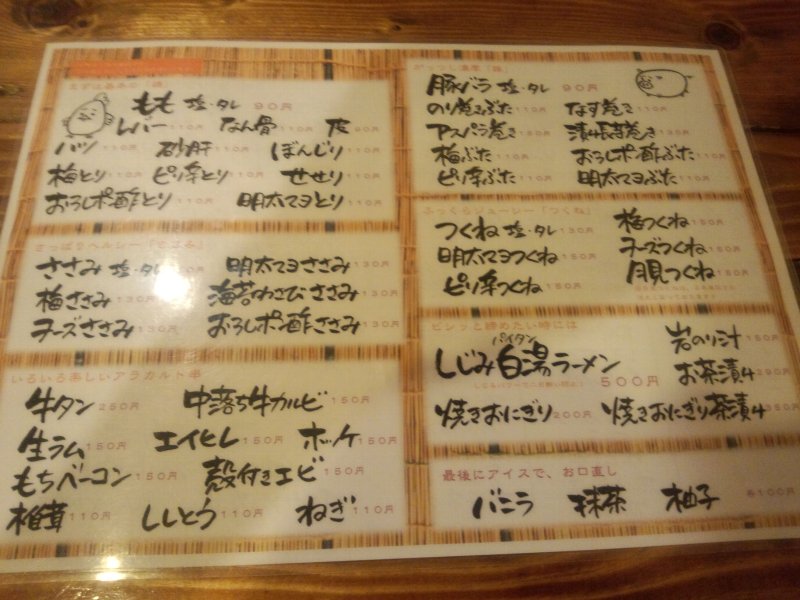 まずは基本の「鶏」
もも 塩・タレ 90円
レバー 110円 なん骨 110円 皮 90円
ハツ 110円 砂肝 110円 ぼんじり 110円
梅とり 110円 ピリ辛とり 110円 せせり 110円
おろしポン酢とり 110円 明太マヨとり 110円
さっぱりヘルシー「ささみ」
ささみ 塩・タレ 明太マヨささみ 130円
梅ささみ 130円 海苔わさびささみ 130円
チーズささみ 130円 おろしポン酢ささみ 130円
いろいろ楽しいアラカルト串
牛タン 250円 中落ち牛カルビ 150円
生ラム 150円 エイヒレ 150円 ホッケ 150円
もちベーコン 150円 殻付きエビ 150円
椎茸 110円 ししとう 110円 ねぎ 110円
豚バラ 塩・タレ 90円
のり巻きぶた 110円 なす巻き 110円
アスパラ巻き 130円 漬け長芋巻き 130円
梅ぶた 110円 おろしポン酢ぶた 110円
ピリ辛ぶた 110円 明太マヨぶた 110円
ふっくらジューシー「つくね」
つくね 塩・タレ 130円 梅つくね 150円
明太マヨつくね 150円 チーズつくね 150円
ピリ辛つくね 150円 月見つくね 150円
ビシッと締めたい時には
しじみ白湯ラーメン パイタン 500円 岩のり汁 150円
お茶漬け 290円
焼きおにぎり 200円 焼きおにぎり茶漬け 350円
最後にアイスで、お口直し
バニラ 抹茶 柚子 各100円